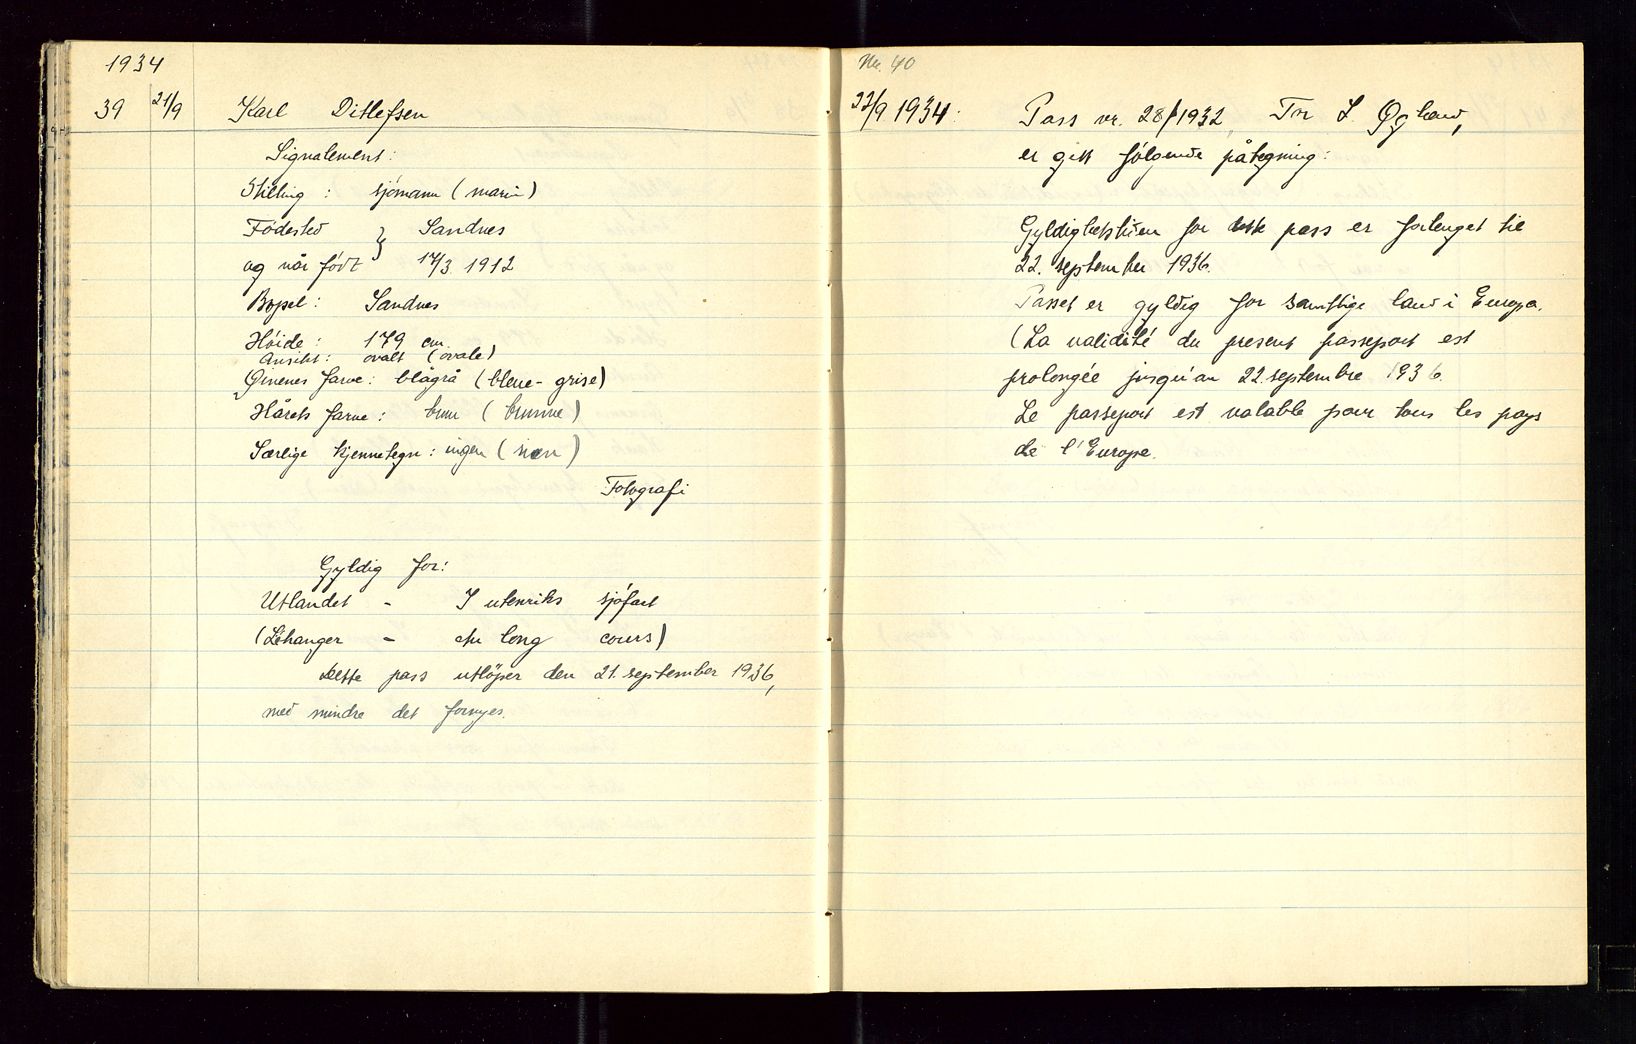 1934
39 21/9 Karl Ditlefsen
Signalement:
Stilling : sjømann (marin)
Fødested } Sandnes
og når født } 17/3 1912
Bopel: Sandnes
Høide: 179 cm.
Ansikt: ovalt (ovale)
Øinenes farve: blågrå (bleue-grise)
Hårets farve: brun (brunne)
Særlige kjennetegn: ingen (non)
Fotografi
Gyldig for:
Utlandet - I utenriks sjøfart
(L'étranger - au long cours)
Dette pass utløper den 21. september 1936,
med mindre det fornyes.
Nr. 40
22/9 1934: Pass nr. 28/1932, Tor S. Øgland,
er gitt følgende påtegning:
Gyldighetstiden for dette pass er forlenget til
22. september 1936.
Passet er gyldig for samtlige land i Europa.
(La validité du present passeport est
prolongée jusqu'au 22. septembre 1936.
Le passeport est valable pour tous les pays
de l'Europe.